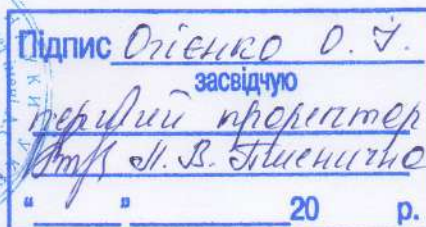 Підпис Огієнко О. І.
засвідчую
перший проректор
Н. В. Пшенична
“ ” 20 р.